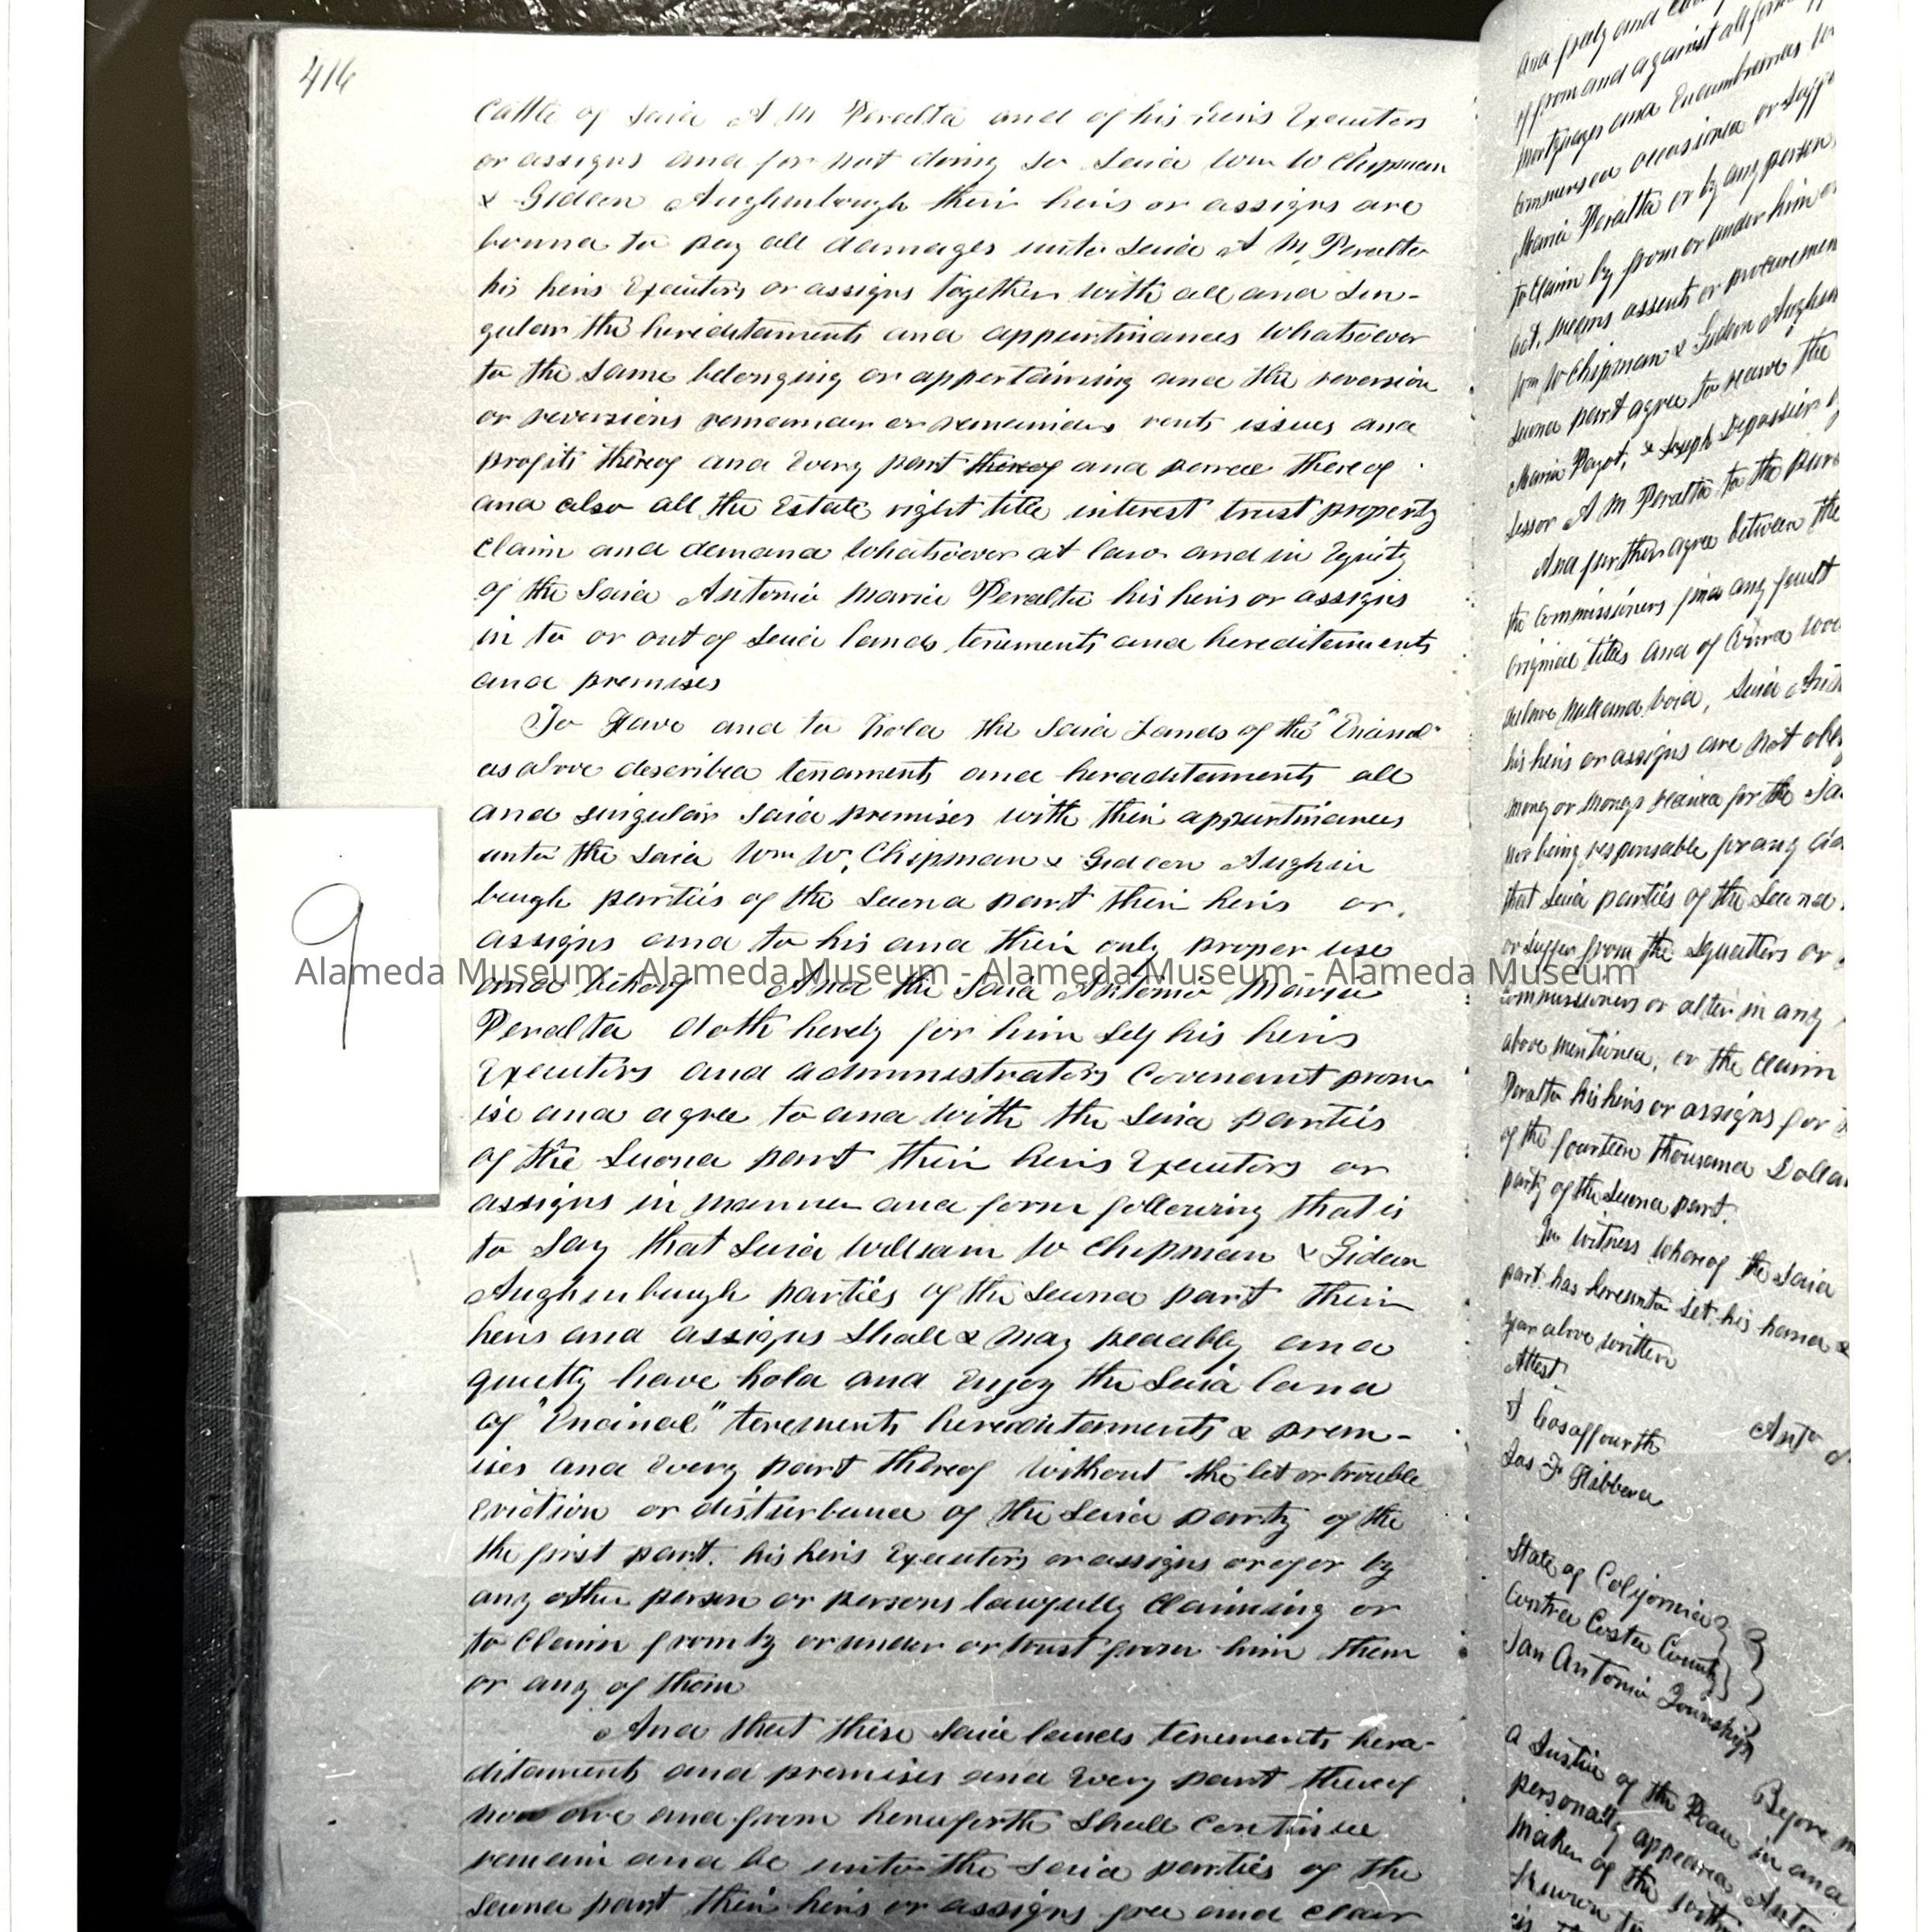 416
Cattle of said A M Peralta and of his heirs Executors
or assigns and for not doing so said Wm W Chipman
& Gideon Aughinbaugh their heirs or assigns are
bound to pay all damages unto said A M. Peralta
his heirs Executors or assigns together with all and Sin-
gular the hereditaments and appurtinances whatsoever
to the same belonging or appertaining and the reversion
or reversions remainder or remainders rents issues and
profits thereof and Every part thereof and parcel thereof
and also all the Estate right title interest trust property
Claim and demand whatsoever at law and in Equity
of the Said Antonio Maria Peralta his heirs or assigns
in to or out of said lands tenements and hereditaments
and premises
To Have and to hold the Said Lands of the "Encinal"
as above described tenaments and heraditaments all
and singular said premises with their appurtinances
unto the said Wm W. Chipman & Gideon Aughin
baugh parties of the Second part their heirs or
assigns and to his and their only proper use
Alameda Museum - Alameda Museum - Alameda Museum - Alameda Museum
and behoof And the Said Antonio Maria
Peralta doth hereby for him self his heirs
Executors and administrators Covenant prom
ise and agree to and with the Said parties
of the Second part their heirs Executors or
assigns in manner and form following that is
to Say that Said William W Chipman & Gideon
Aughinbaugh parties of the Second part their
heirs and assigns Shall & may peacably and
quietly have hold and Enjoy the Said land
of "Encinal" tenements hereditaments & prem-
ises and Every part thereof without the let or trouble
Eviction or disturbance of the Said party of the
the first part. his heirs Executors or assigns or of or by
any other person or persons lawfully Claiming or
to Claim from by or under or trust from him them
or any of them
And that these Said lands tenements hera-
ditaments and premises and Every part thereof
now are and from henceforth Shall Continue
remain and be unto the Said parties of the
Second part their heirs or assigns free and clear
9
and freely and
of from and against all former
mortgages and Encumbrances
commersed occasioned or
Maria Peralta or by any person
to Claim by from or under him or
act, means assents or procuremen
Wm W Chipman & Gideon Aughin
Second part agree to the
Maria & Joseph
lessor A M Peralta to the
And further agree between the
the Commissioners find any fault
original titles and of
declare null and void, Said
his heirs or assigns are not
money or moneys for the
nor being responsable for any
that Said parties of the Second
or suffer from the Squatters or
commissioners or alter in any
above mentioned, or the Claim
Peralta his heirs or assigns for
of the fourteen thousand Dolla
party of the Second part.
In Witness whereof the Said
part has hereunto Set his hand &
year above written
Attest
Anto
Jas F Hibberd
State of California
Contra Costa County
San Antonio Township
Before m
a Justice of the Peace in and
personally appeared Ant
maker of the
Known to
is